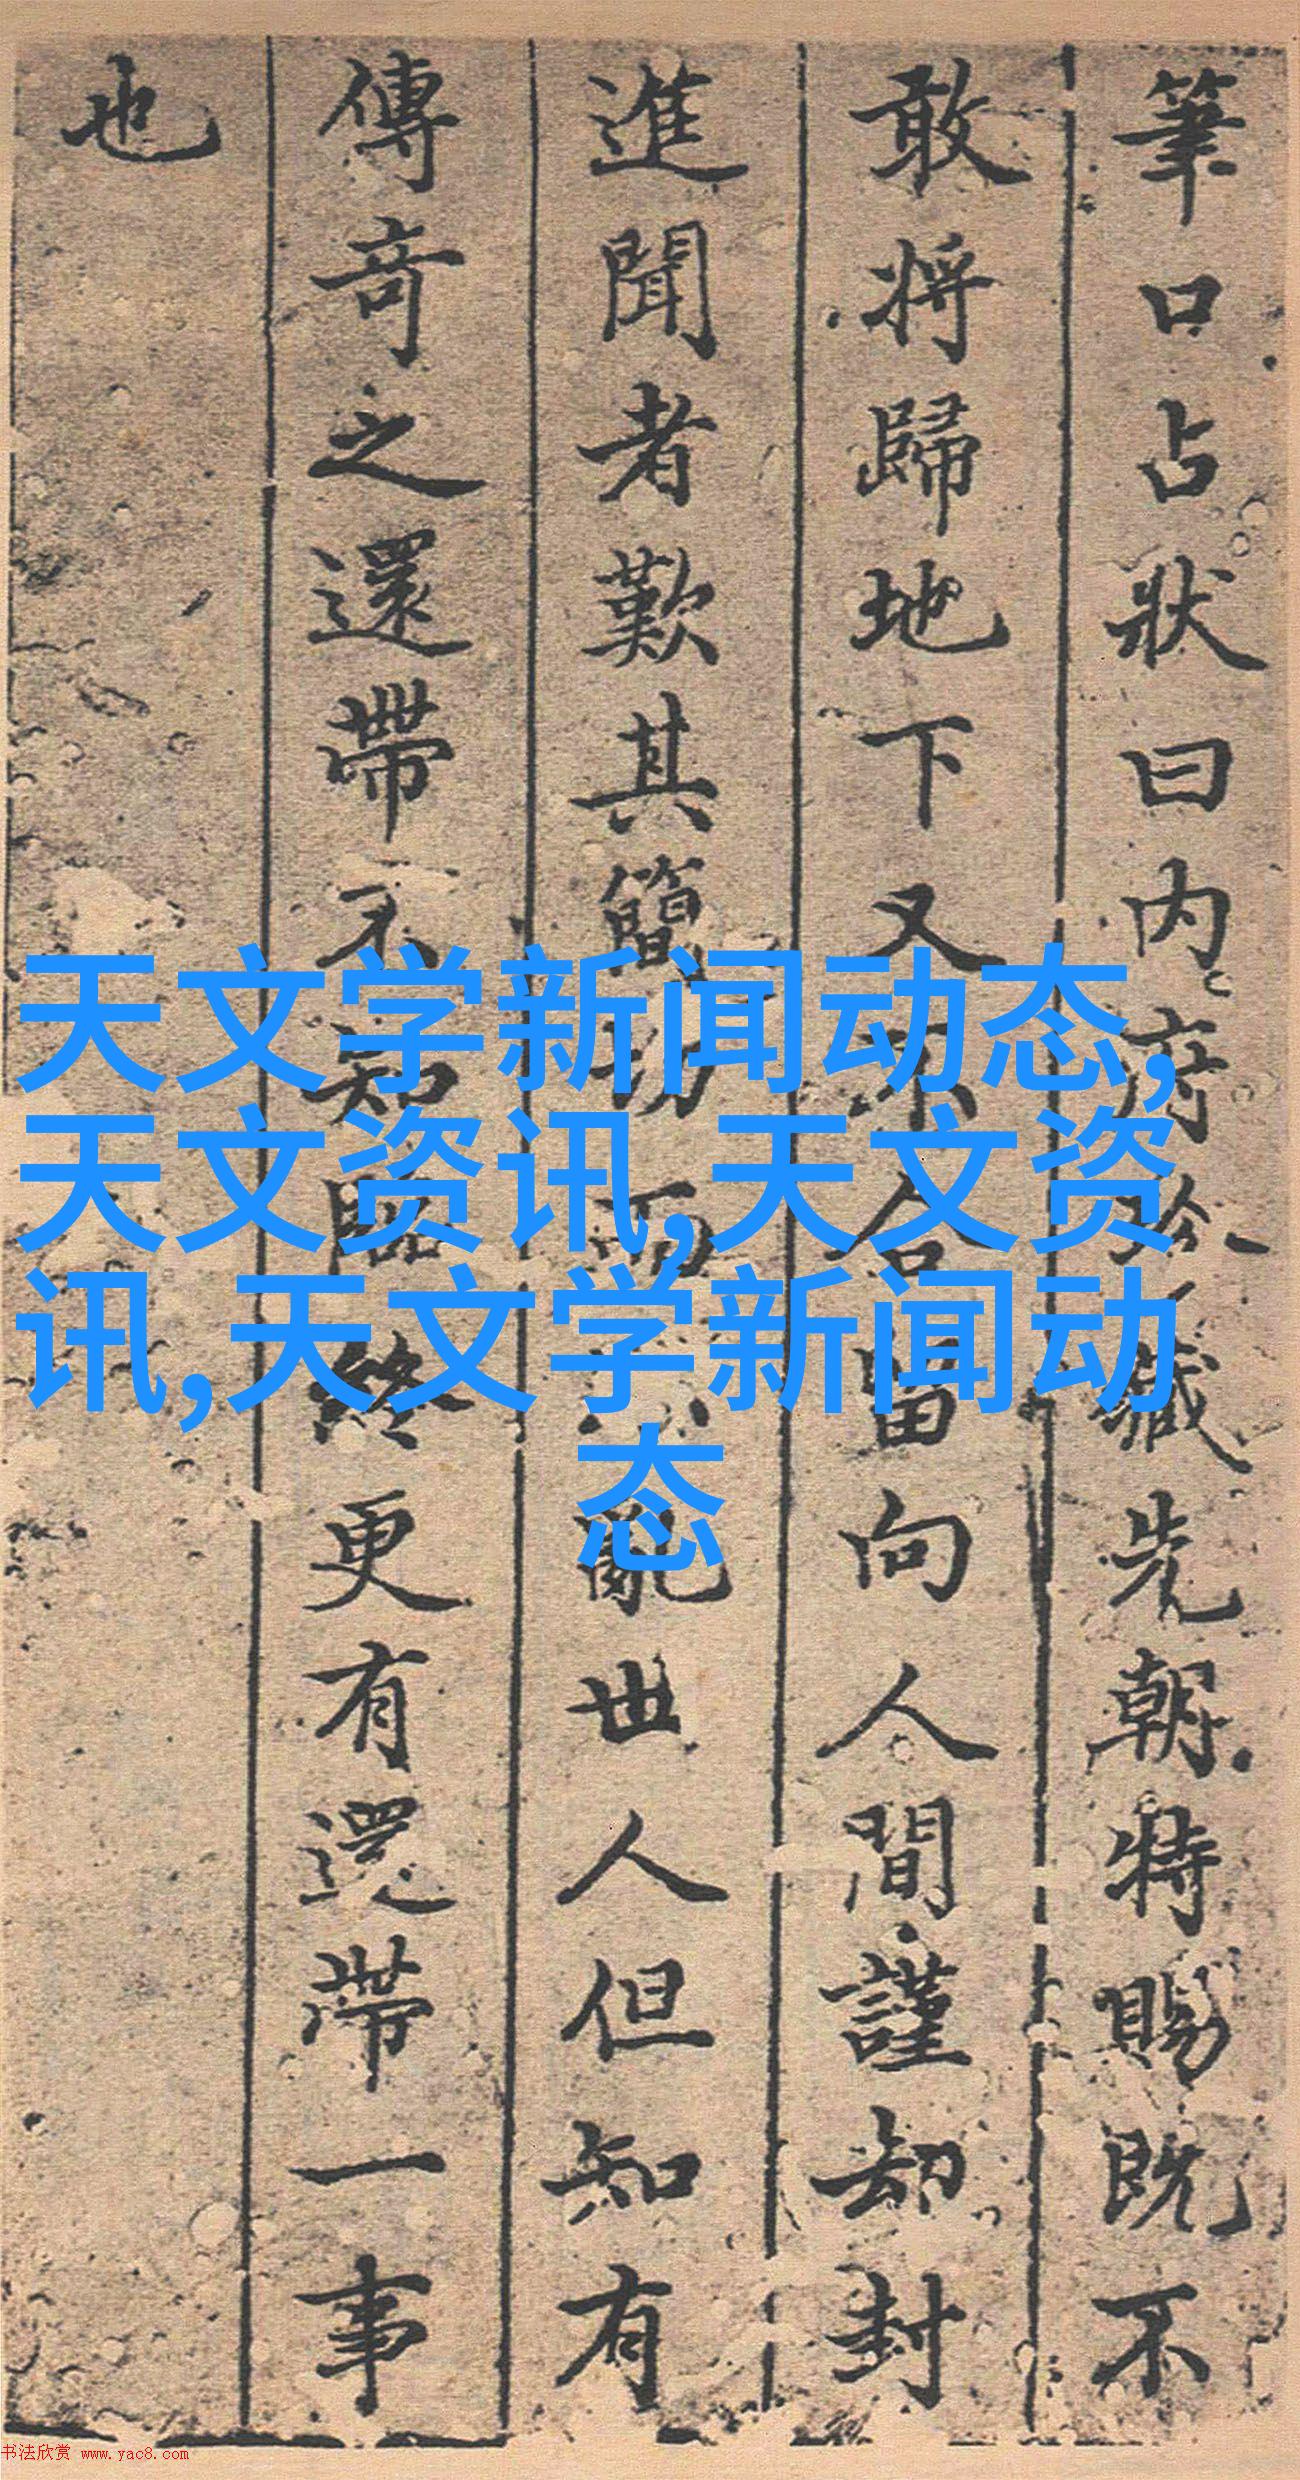 筆口占狀曰内府珍藏先朝特賜既不
敢将歸地下又不合留向人間謹却封
進聞者歎其簡切而不亂世人但知有
傳奇之還帶不知臨終更有還帶一事
也
天文学新闻动态,
天文资讯,天文资
讯,天文学新闻动
态
书法欣赏 www.yac8.com